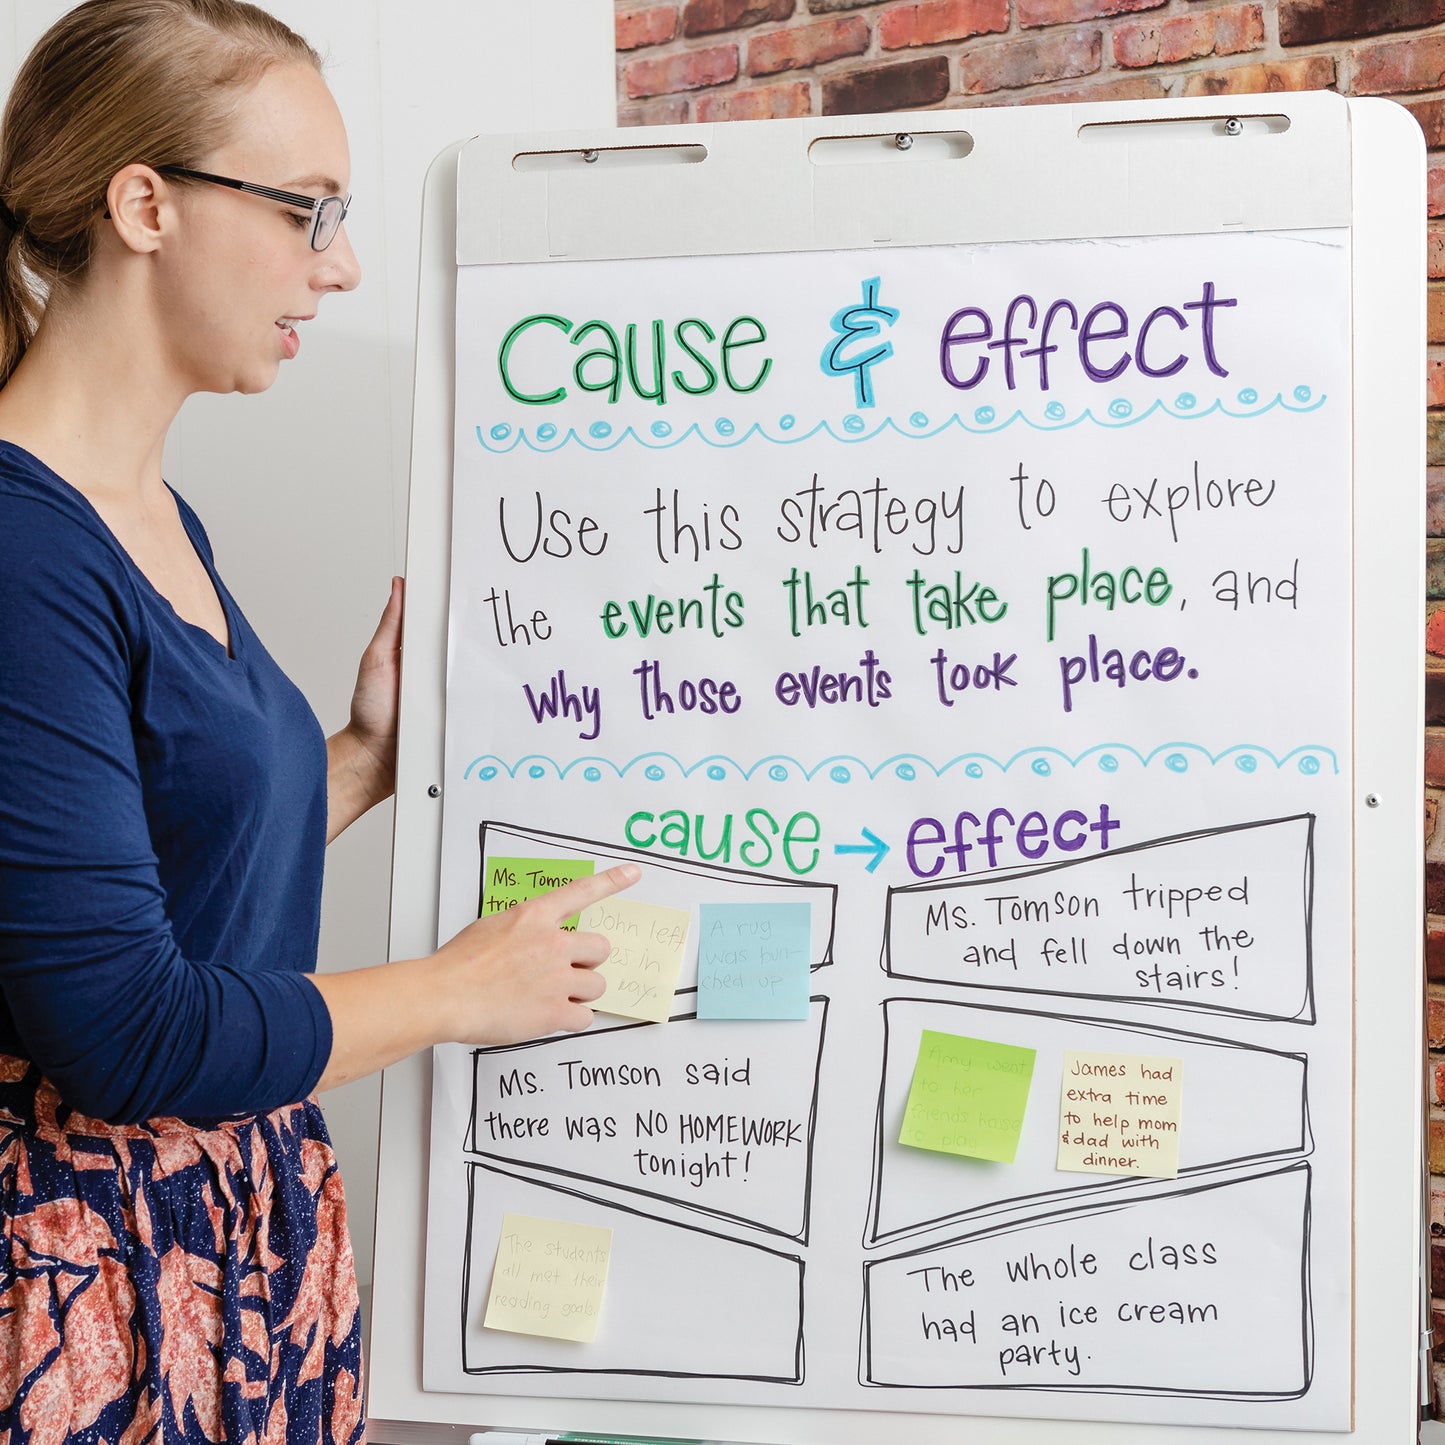 Cause & effect
Use this strategy to explore
the events that take place, and
why those events took place.
cause → effect
Ms.
John left
in
way.
A rug
was hun-
ched up
Ms. Tomson tripped
and fell down the
stairs!
Ms. Tomson said
there was NO HOMEWORK
tonight!
Amy went
to her
friends house
to play
James had
extra time
to help mom
& dad with
dinner.
The students
all met their
reading goals.
The whole class
had an ice cream
party.